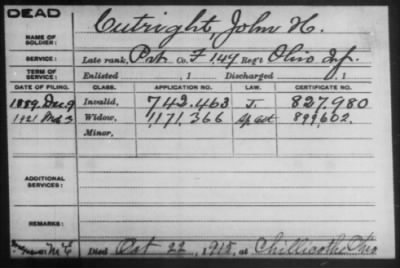 DEAD
NAME OF SOLDIER: Cutright, John H.
SERVICE: Late rank, Pvt Co. F 149 Reg't Ohio Inf.
TERM OF SERVICE: Enlisted , 1 Discharged , 1
DATE OF FILING. CLASS. APPLICATION NO. LAW. CERTIFICATE NO.
1889 Dec 9 Invalid, 742.463 J. 827.980
1921 Widow, 1,171,366 899,602.
Minor,
ADDITIONAL SERVICES:
REMARKS:
Died Oct 22, 1915, at Chillicothe Ohio